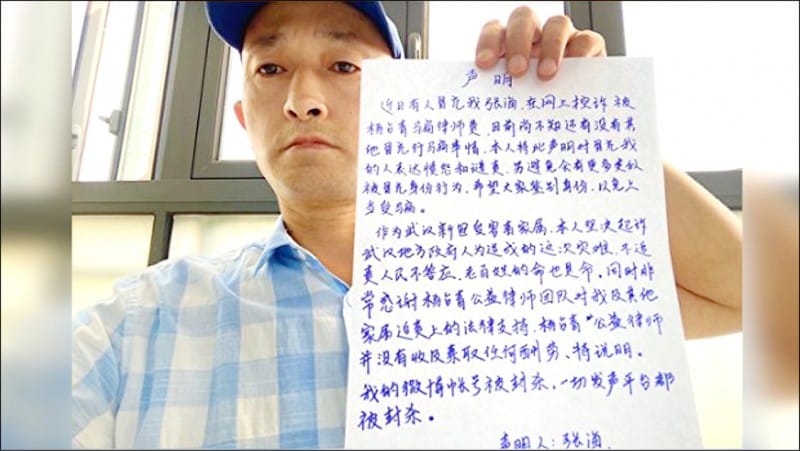 声明
近日有人冒充我张海，在网上控诉被
杨占青骗律师费，目前尚不知还有没有其
他冒充行骗事情，本人特此声明对冒充我
的人表达愤怒和谴责，另避免会有更多类似
被冒充身份行为，希望大家鉴别身份，以免上
当受骗。
作为武汉新冠受害者家属，本人坚决起诉
武汉地方政府人为造成的这次灾难，不追
责人民不答应，老百姓的命也是命。同时非
常感谢杨占青公益律师团队对我及其他
家属追责上的法律支持，杨占青"公益律师
并没有收及索取任何酬劳、特说明。
我的微博帐号被封杀，一切发声平台都
被封杀。
声明人：张海